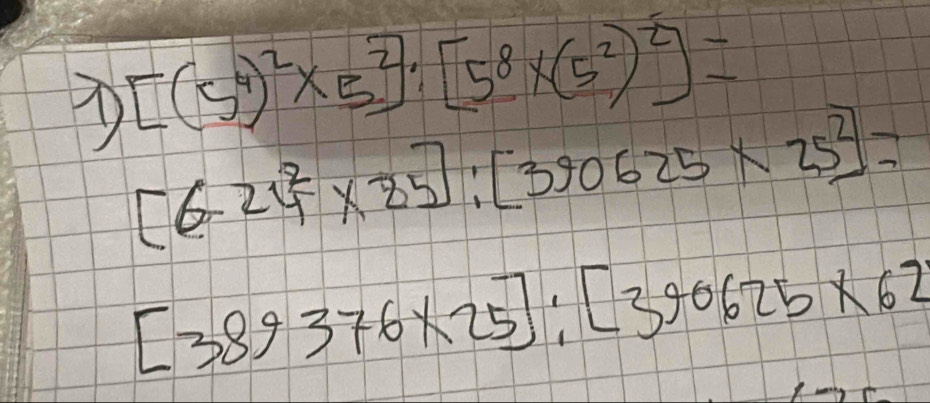 1) [(5⁴)² × 5²] : [5⁸ × (5²)²] =
[624² × 25] : [390625 × 25²] =
[389376 × 25] : [390625 × 62